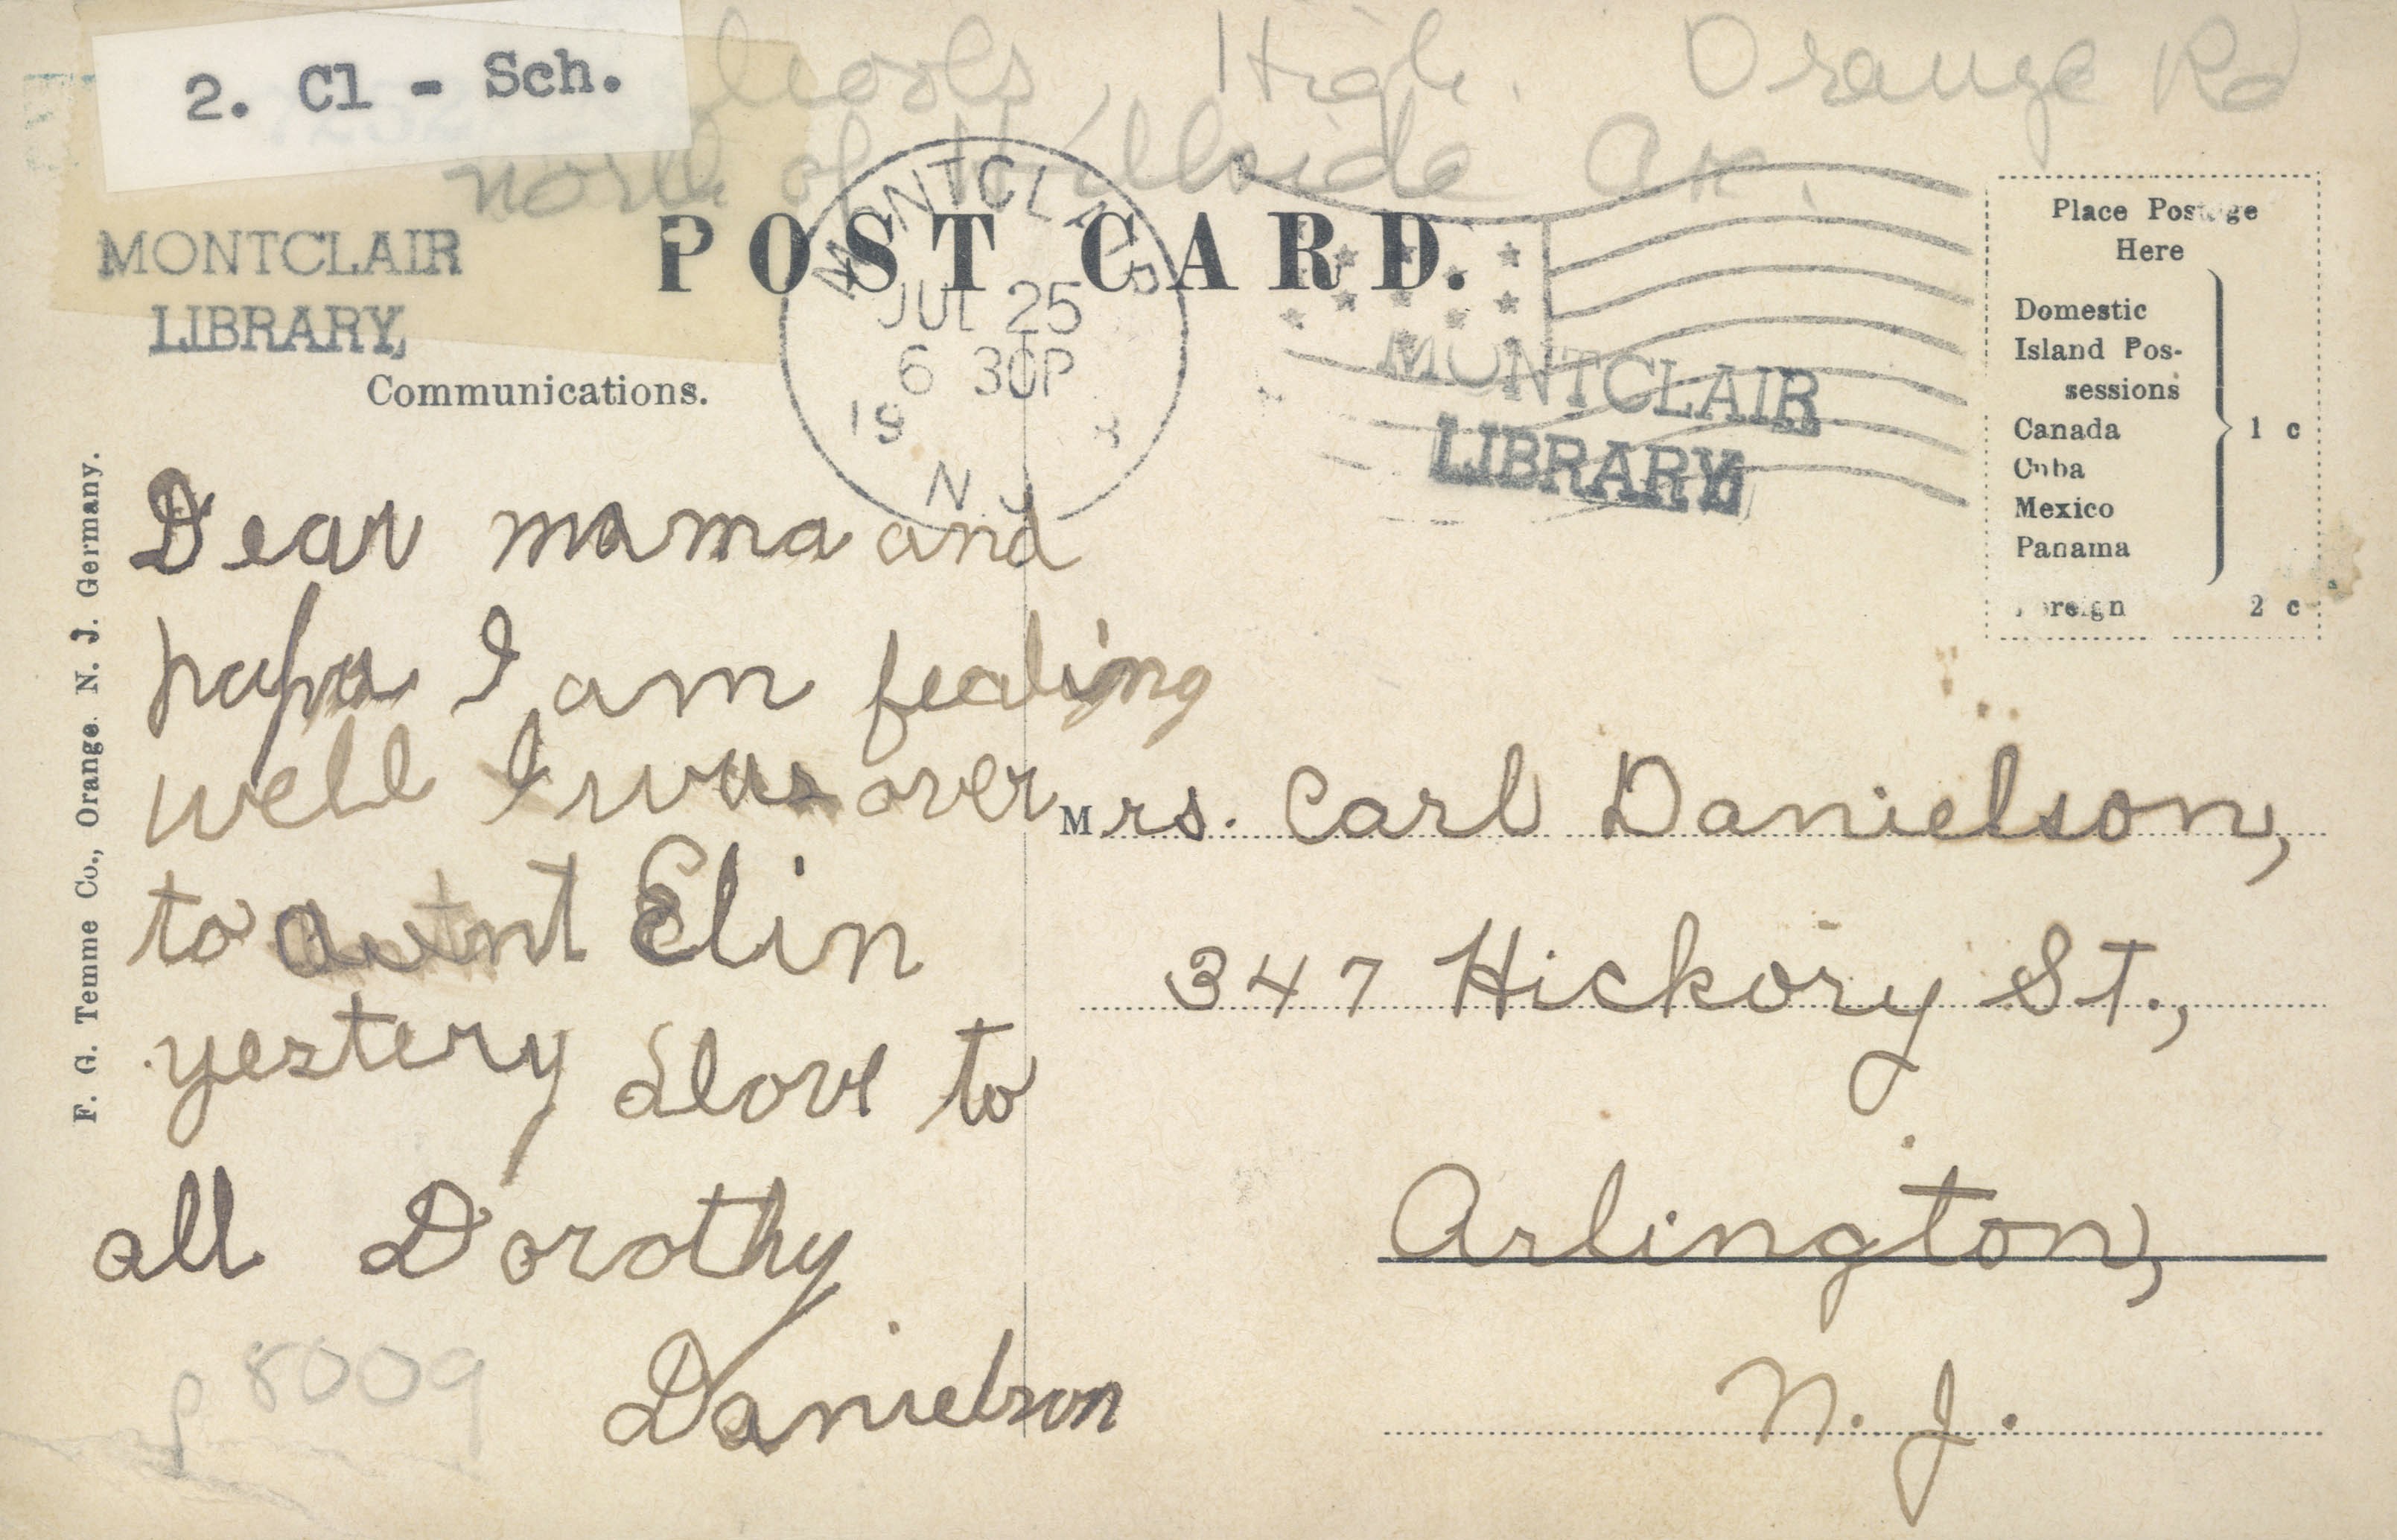 2. Cl - Sch.
High. Orange Rd
North of Hillside Av.
MONTCLAIR
LIBRARY,
POST CARD.
MONTCLAIR
JUL 25
6 30P
19
N.J
MONTCLAIR
LIBRARY
Place Postage
Here
Domestic
Island Pos-
sessions
Canada
Cuba
Mexico
Panama
1 c
Foreign 2 c
Communications.
F. G. Temme Co., Orange. N. J. Germany.
Dear mama and
papa I am fealing
well I was over
to aunt Elin
yestery love to
all Dorothy
Danielson
8009
Mrs. Carl Danielson,
347 Hickory St.,
Arlington,
N. J.